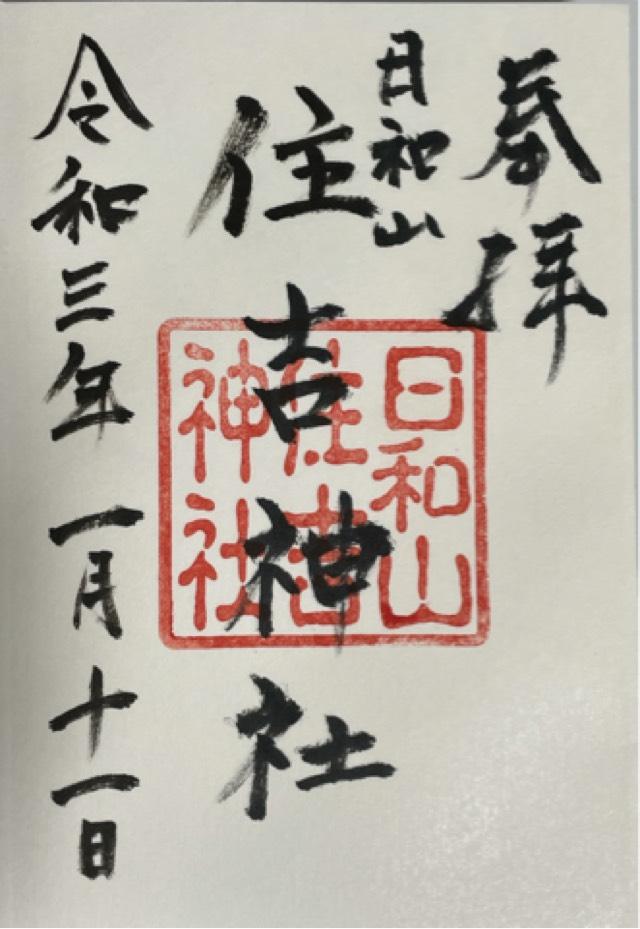 奉拝
日和山
住吉神社
日和山
住吉
神社
令和三年一月十一日